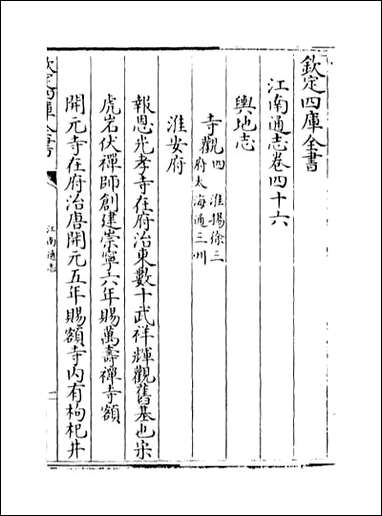 欽定四庫全書
江南通志卷四十六
輿地志
寺觀四 淮揚徐三府太海通三州
淮安府
報恩光孝寺在府治東數十武祥輝觀舊基也宋
虎岩伏禪師創建崇寧六年賜萬壽禪寺額
開元寺在府治唐開元五年賜額寺内有枸杞井
欽定四庫全書
江南通志